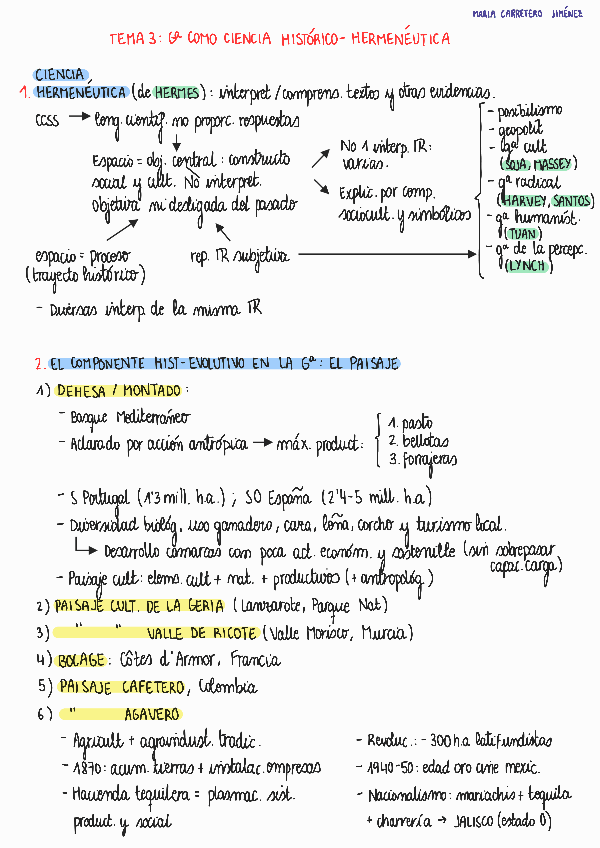 MARIA CARRETERO JIMÉNEZ
TEMA 3: Gª COMO CIENCIA HISTÓRICO-HERMENÉUTICA
CIENCIA
1. HERMENÉUTICA (de HERMES): interpret/comprens. textos y otras evidencias.
CCSS → leng. científ. no proporc. respuestas
Espacio = obj. central: constructo
social y cult. No interpret.
objetiva ni desligada del pasado
No 1 interp. TR:
varias.
Explic. por comp.
sociocult. y simbólicos
- posibilismo
- geopolít
- gª cult
(SOJA, MASSEY)
- gª radical
(HARVEY, SANTOS)
- gª humaníst.
(TUAN)
- gª de la percepc.
(LYNCH)
espacio = proceso
(trayecto histórico)
rep. TR subjetiva
- Diversas interp. de la misma TR
2. EL COMPONENTE HIST-EVOLUTIVO EN LA Gª: EL PAISAJE
1) DEHESA / MONTADO:
- Bosque Mediterráneo
- Aclarado por acción antrópica → máx. product:
1. pasto
2. bellotas
3. forrajeras
- S Portugal (1'3 mill. h.a.); SO España (2'4-5 mill. h.a)
- Diversidad biológ, uso ganadero, caza, leña, corcho y turismo local.
Desarrollo comarcas con poca act. económ. y sostenible (sin sobrepasar
capac. carga)
- Paisaje cult: elems. cult + nat. + productivos (+ antropológ.)
2) PAISAJE CULT. DE LA GERIA (Lanzarote, Parque Nat)
3) " " VALLE DE RICOTE (Valle Morisco, Murcia)
4) BOCAGE: Côtes d'Armor, Francia
5) PAISAJE CAFETERO, Colombia
6) " AGAVERO
- Agricult + agroindust. tradic.
- 1870: acum. tierras + instalac. empresas
- Hacienda tequilera = plasmac. sist.
product. y social
- Revoluc.: - 300 h.a latifundistas
- 1940-50: edad oro cine mexic.
- Nacionalismo: mariachis + tequila
+ charrería → JALISCO (estado O)